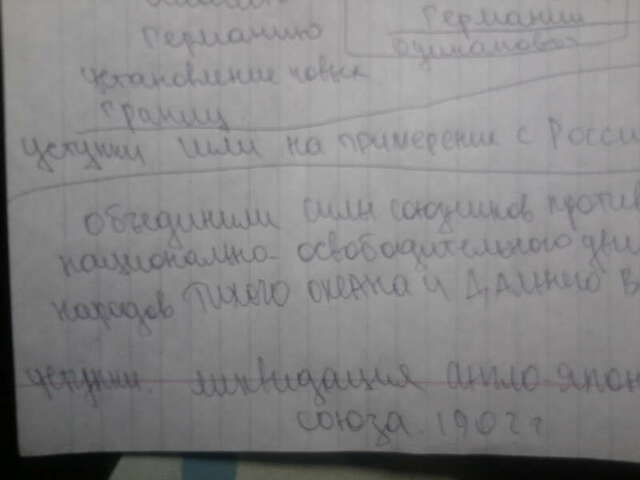 Германию
установление новых
границ
Германии
уступки шли на примерение с Росси
объединили силы союзников против
национально-освободительного дви
народов Тихого океана и Дальнего В
уступки. ликвидация англо япон
союза. 1902 г